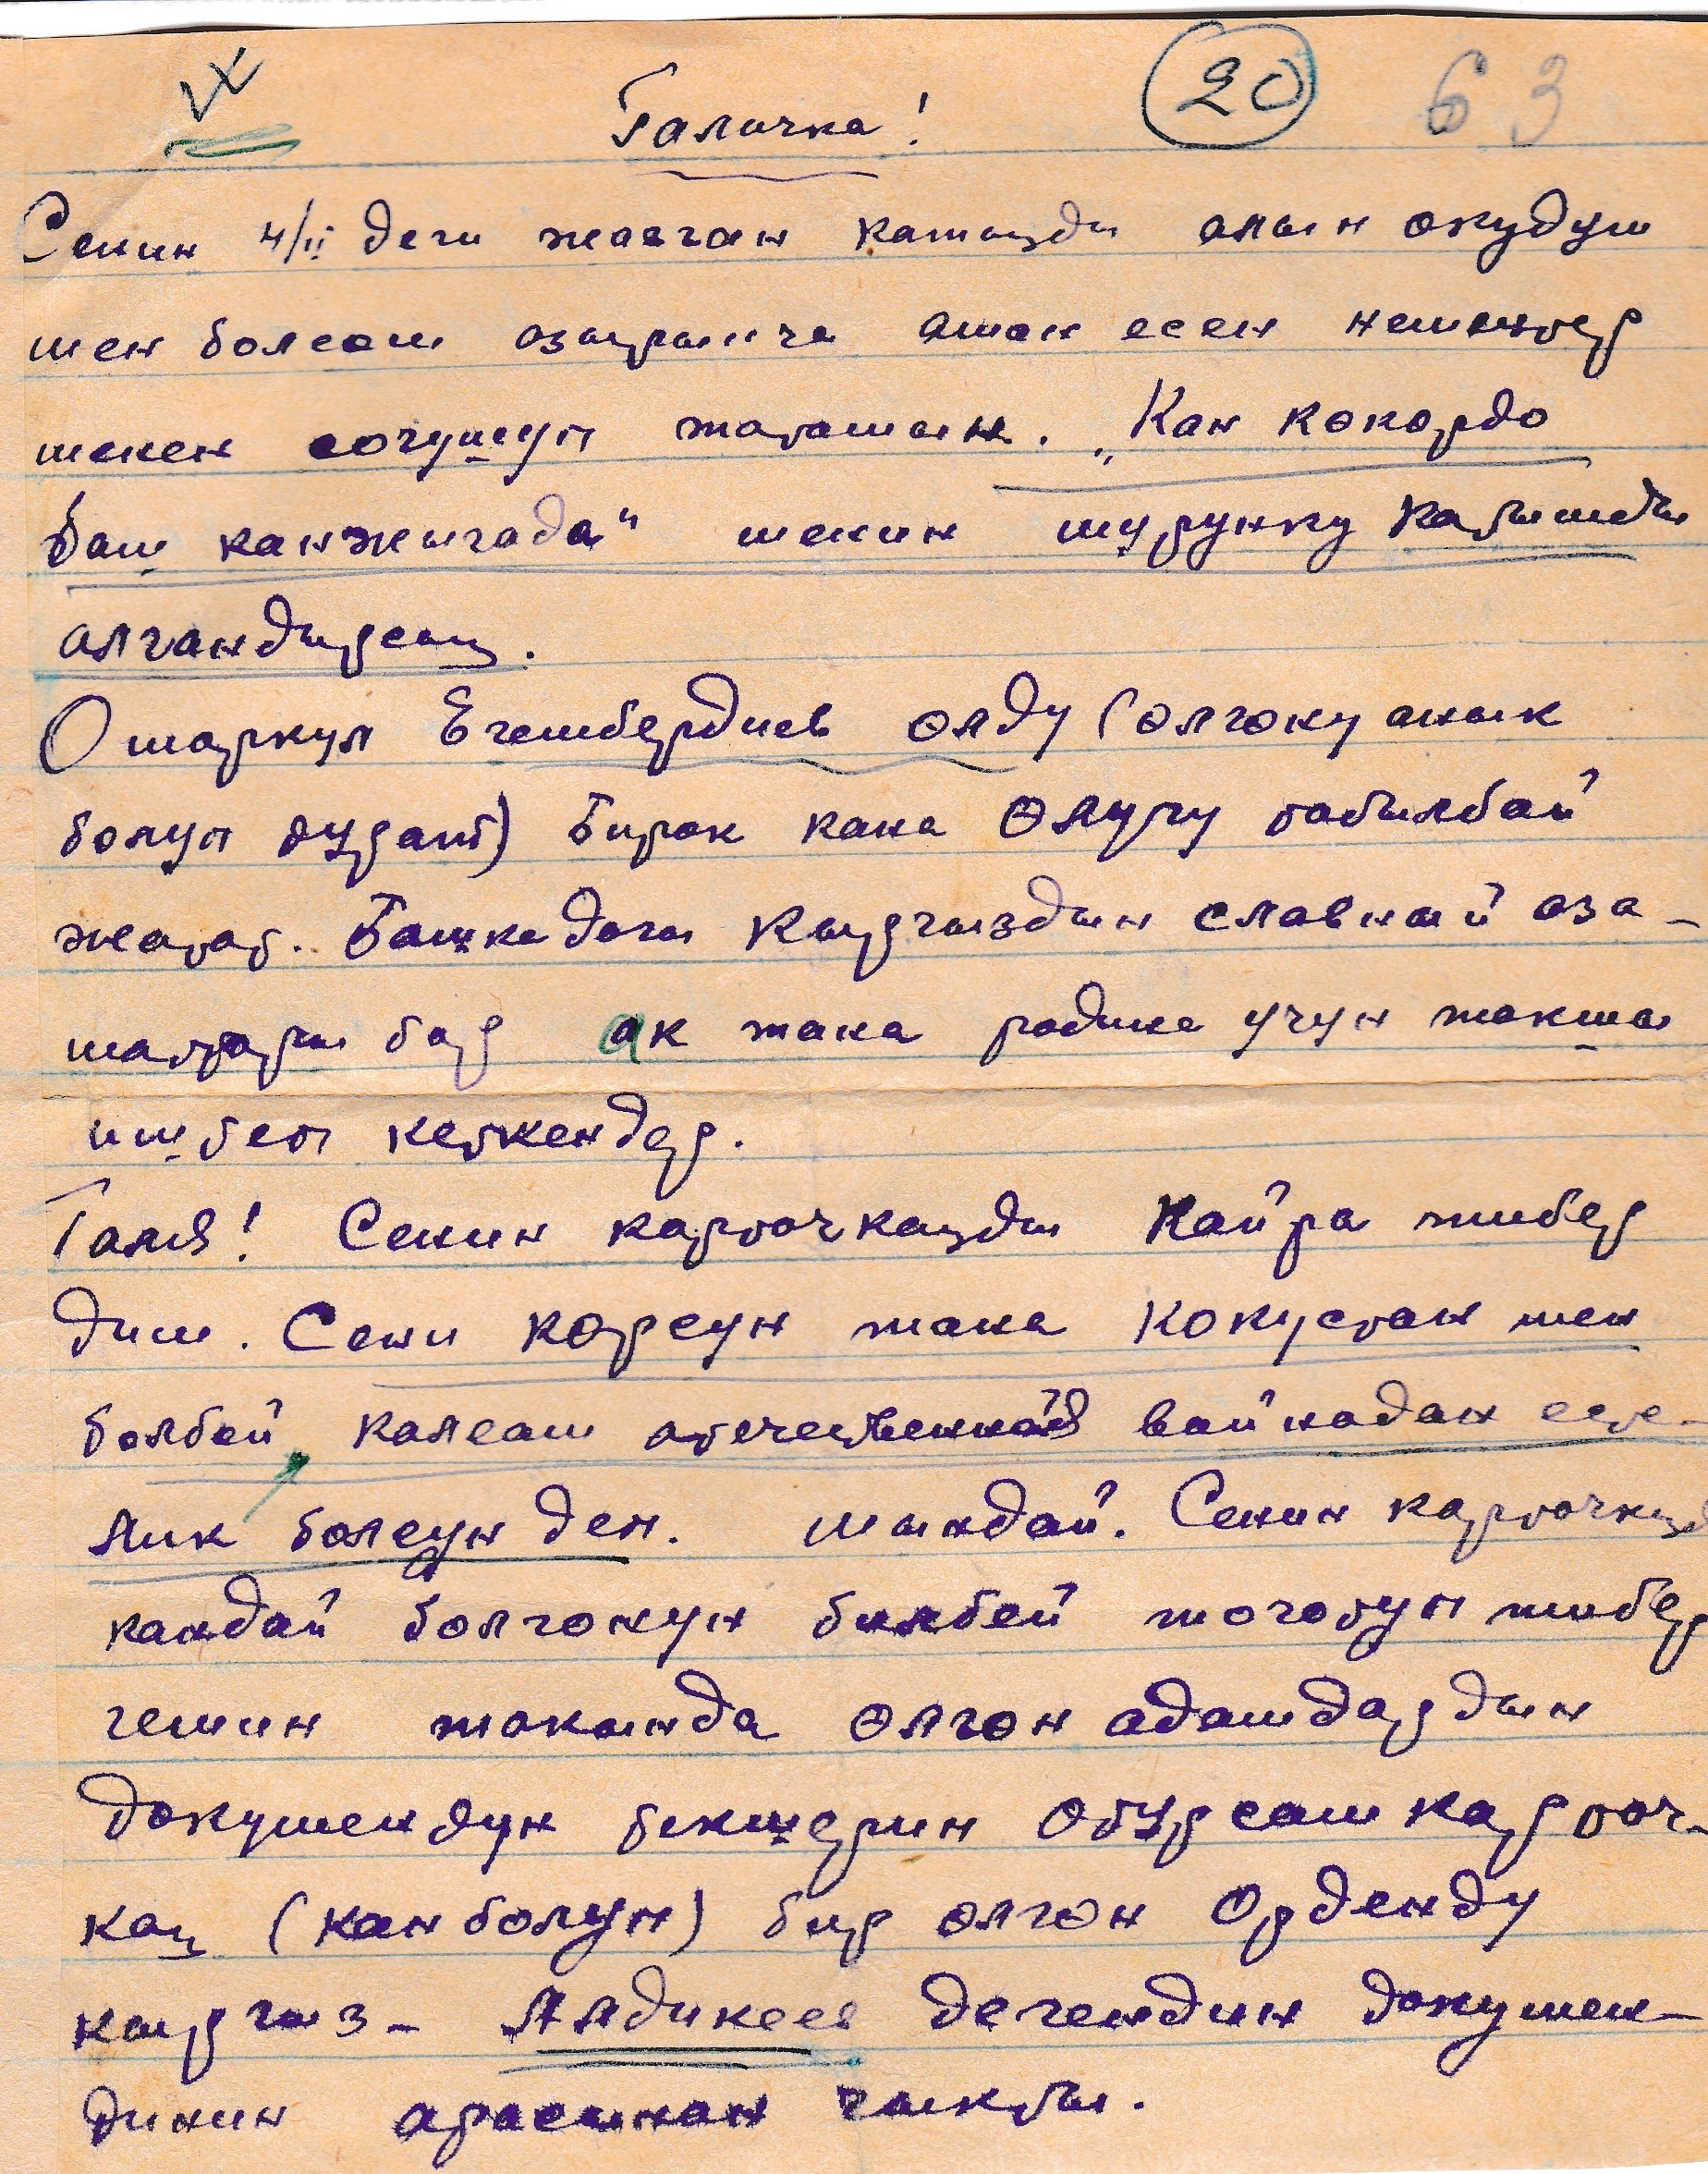 IX Галичка! 20 63
Сенин 4/II деги жазган катыңды алып окудум
мен болсам азырынча аман есен немистер
менен согушуп жатамын. „Кан көкөрдө
баш канжыгада" менин мурунку катымды
алгандырсың.
Омаркул Егембердиев өлдү (өлгөнү анык
болуп турат) бирок кана өлүгү табылбай
жатат. Башка дагы кыргыздын славный аза-
маттары бар ак жана родина үчүн жакшы
иштеп кеткендер.
Галя! Сенин карточкаңды кайра жибер
дим. Сени көрсүн жана кокустан мен
болбой калсам отечественной войнадан есте-
лик болсун деп. мындай. Сенин карточкаң
кандай болгонун билбей жоготуп жибер
гемин жакында өлгөн адамдардын
документүн текшерип отурсам карточ-
каң (кан болуп) бир өлгөн орденду
кыргыз - Алдикеев дегендин докумен-
динин арасынан чыкты.